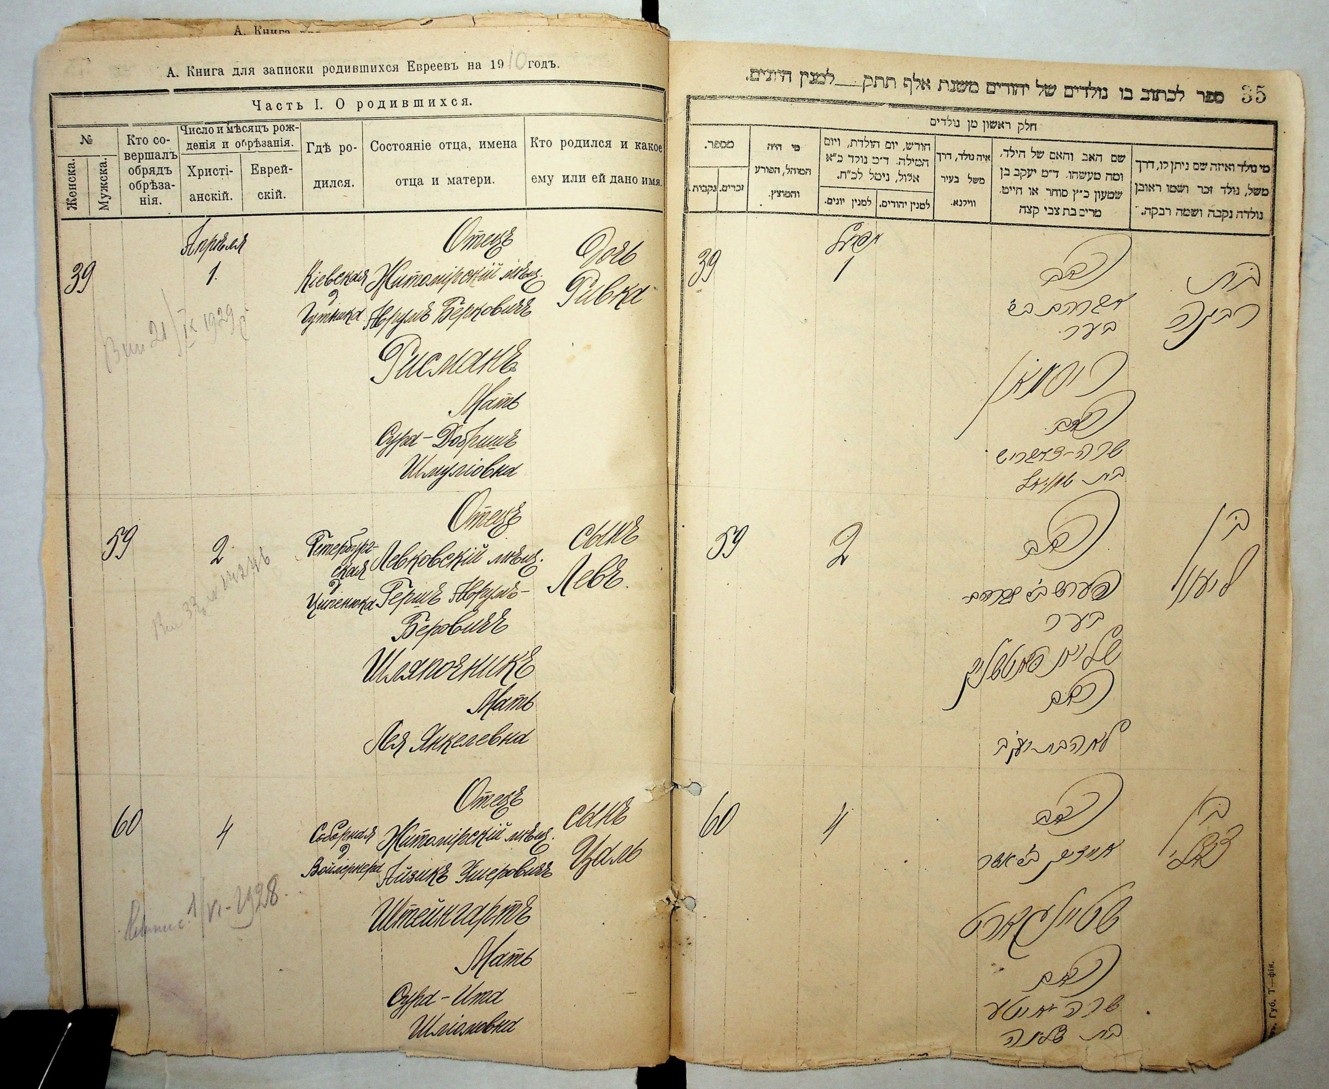 А. Книга для записки родившихся Евреевъ на 1910 годъ.
Часть I. О родившихся.
№
Женска.
Мужска.
Кто совершалъ обрядъ обрѣзанія.
Число и мѣсяцъ рожденія и обрѣзанія.
Христіанскій.
Еврейскій.
Гдѣ родился.
Состояніе отца, имена отца и матери.
Кто родился и какое ему или ей дано имя.
Апрѣля
39
1.
Кіевская
д
Гутника
Отецъ
Житомірскій мѣщ.
Аврумъ Берковичъ
Рисманъ
Мать
Сура-Добришъ
Шмуліовна
Дочь
Ривка
21/IX 1929 г
59
2
Петербургская
д
Отецъ
Левковскій мѣщ.
Гершъ Аврумъ-
Беровичъ
Шляпочникъ
Мать
Лея Янкелевна
сынъ
Левъ.
60
4
Соборная
д
Отецъ
Житомірскій мѣщ.
Айзикъ Ушеровичъ
Штейнгартъ
Мать
Сура-Ита
Шліомовна
сынъ
Цаль
1/VI-1928.
35
ספר לכתוב בו נולדים של יהודים משנת אלף תתק___למנין היונים.
חלק ראשון מן נולדים
מספר.
נקבות.
זכרים.
מי היה המוהל, הפורע והמוצץ.
חודש, יום הולדת, ויום המילה. ד״מ נולד כ״א אלול, ניטל לכ״ח.
למנין יונים.
למנין יהודים.
איה נולד, דרך משל בעיר ווילנא.
שם האב והאם של הילד, ומה מעשהו. ד״מ יעקב בן שמעון כ״ץ סוחר או חייט. מרים בת צבי קצה
מי נולד ואיזה שם ניתן לו, דרך משל, נולד זכר ושמו ראובן נולדה נקבה ושמה רבקה.
39
1
האב
אברהם ב״ר
בער
ריסמאן
האם
בת
רבקה
59
2
האב
בער
האם
לאה בת יעקב
בן
60
4
האב
שטיינגארט
האם
בן